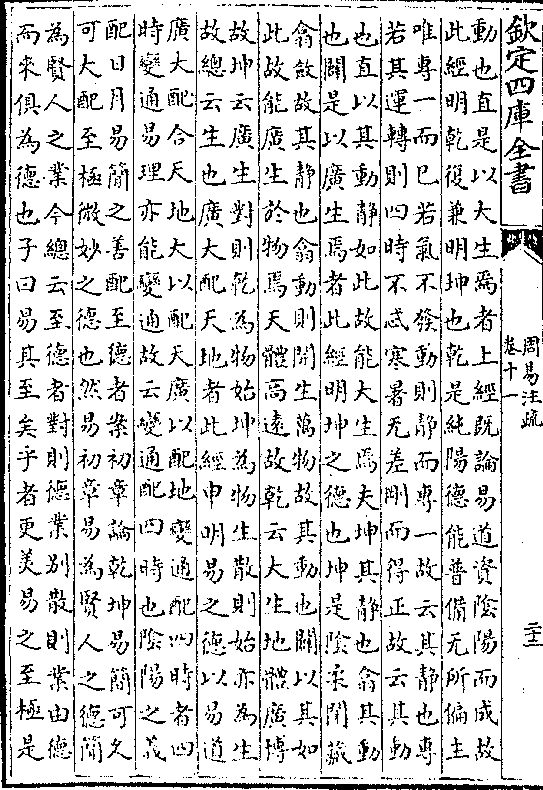 欽定四庫全書
周易注疏
卷十一
二十三
動也直是以大生焉者上經既論易道資陰陽而成故
此經明乾復兼明坤也乾是純陽德能普備无所偏主
唯專一而已若氣不發動則靜而專一故云其靜也專
若其運轉則四時不忒寒暑无差剛而得正故云其動
也直以其動靜如此故能大生焉夫坤其靜也翕其動
也闢是以廣生焉者此經明坤之德也坤是陰柔閉藏
翕斂故其靜也翕動則開生萬物故其動也闢以其如
此故能廣生於物焉天體高遠故乾云大生地體廣博
故坤云廣生對則乾為物始坤為物生散則始亦為生
故總云生也廣大配天地者此經申明易之德以易道
廣大配合天地大以配天廣以配地變通配四時者四
時變通易理亦能變通故云變通配四時也陰陽之義
配日月易簡之善配至德者案初章論乾坤易簡可久
可大配至極微妙之德也然易初章易為賢人之德簡
為賢人之業今總云至德者對則德業別散則業由德
而來俱為德也子曰易其至矣乎者更美易之至極是